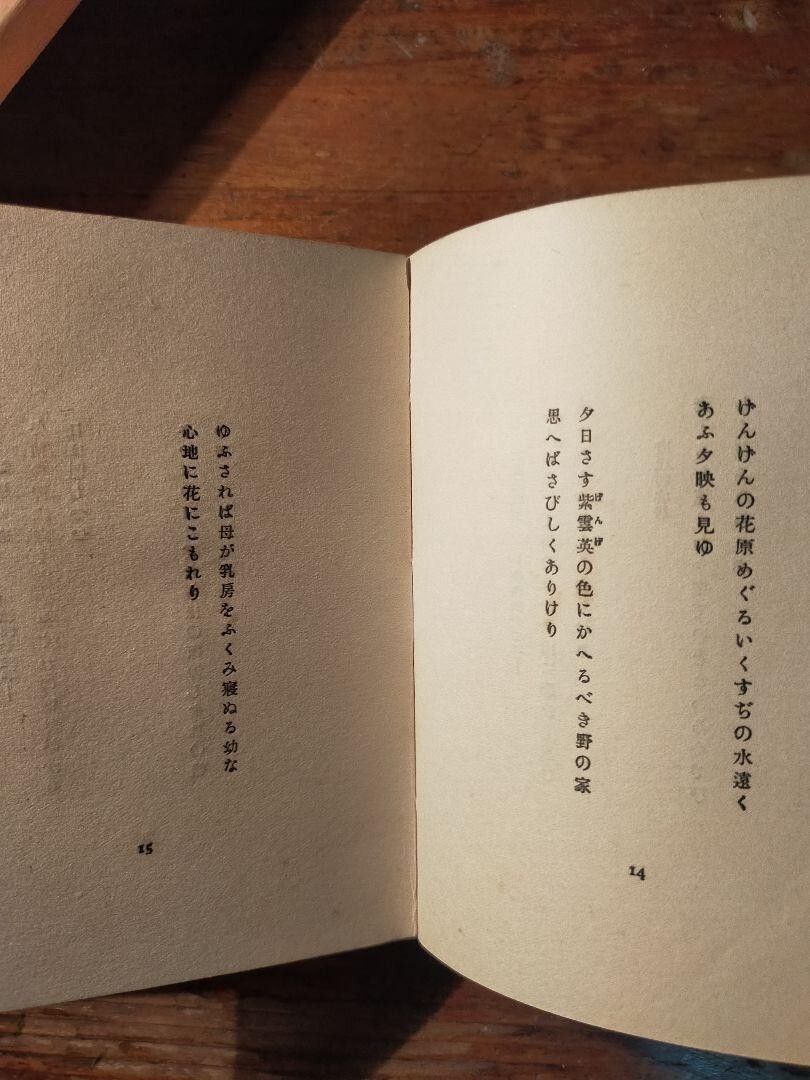 げんげんの花原めぐるいくすぢの水遠く
あふ夕映も見ゆ
夕日さす紫雲英の色にかへるべき野の家
げんげ
思へばさびしくありけり
14
ゆふされば母が乳房をふくみ寝ぬる幼な
心地に花にこもれり
15